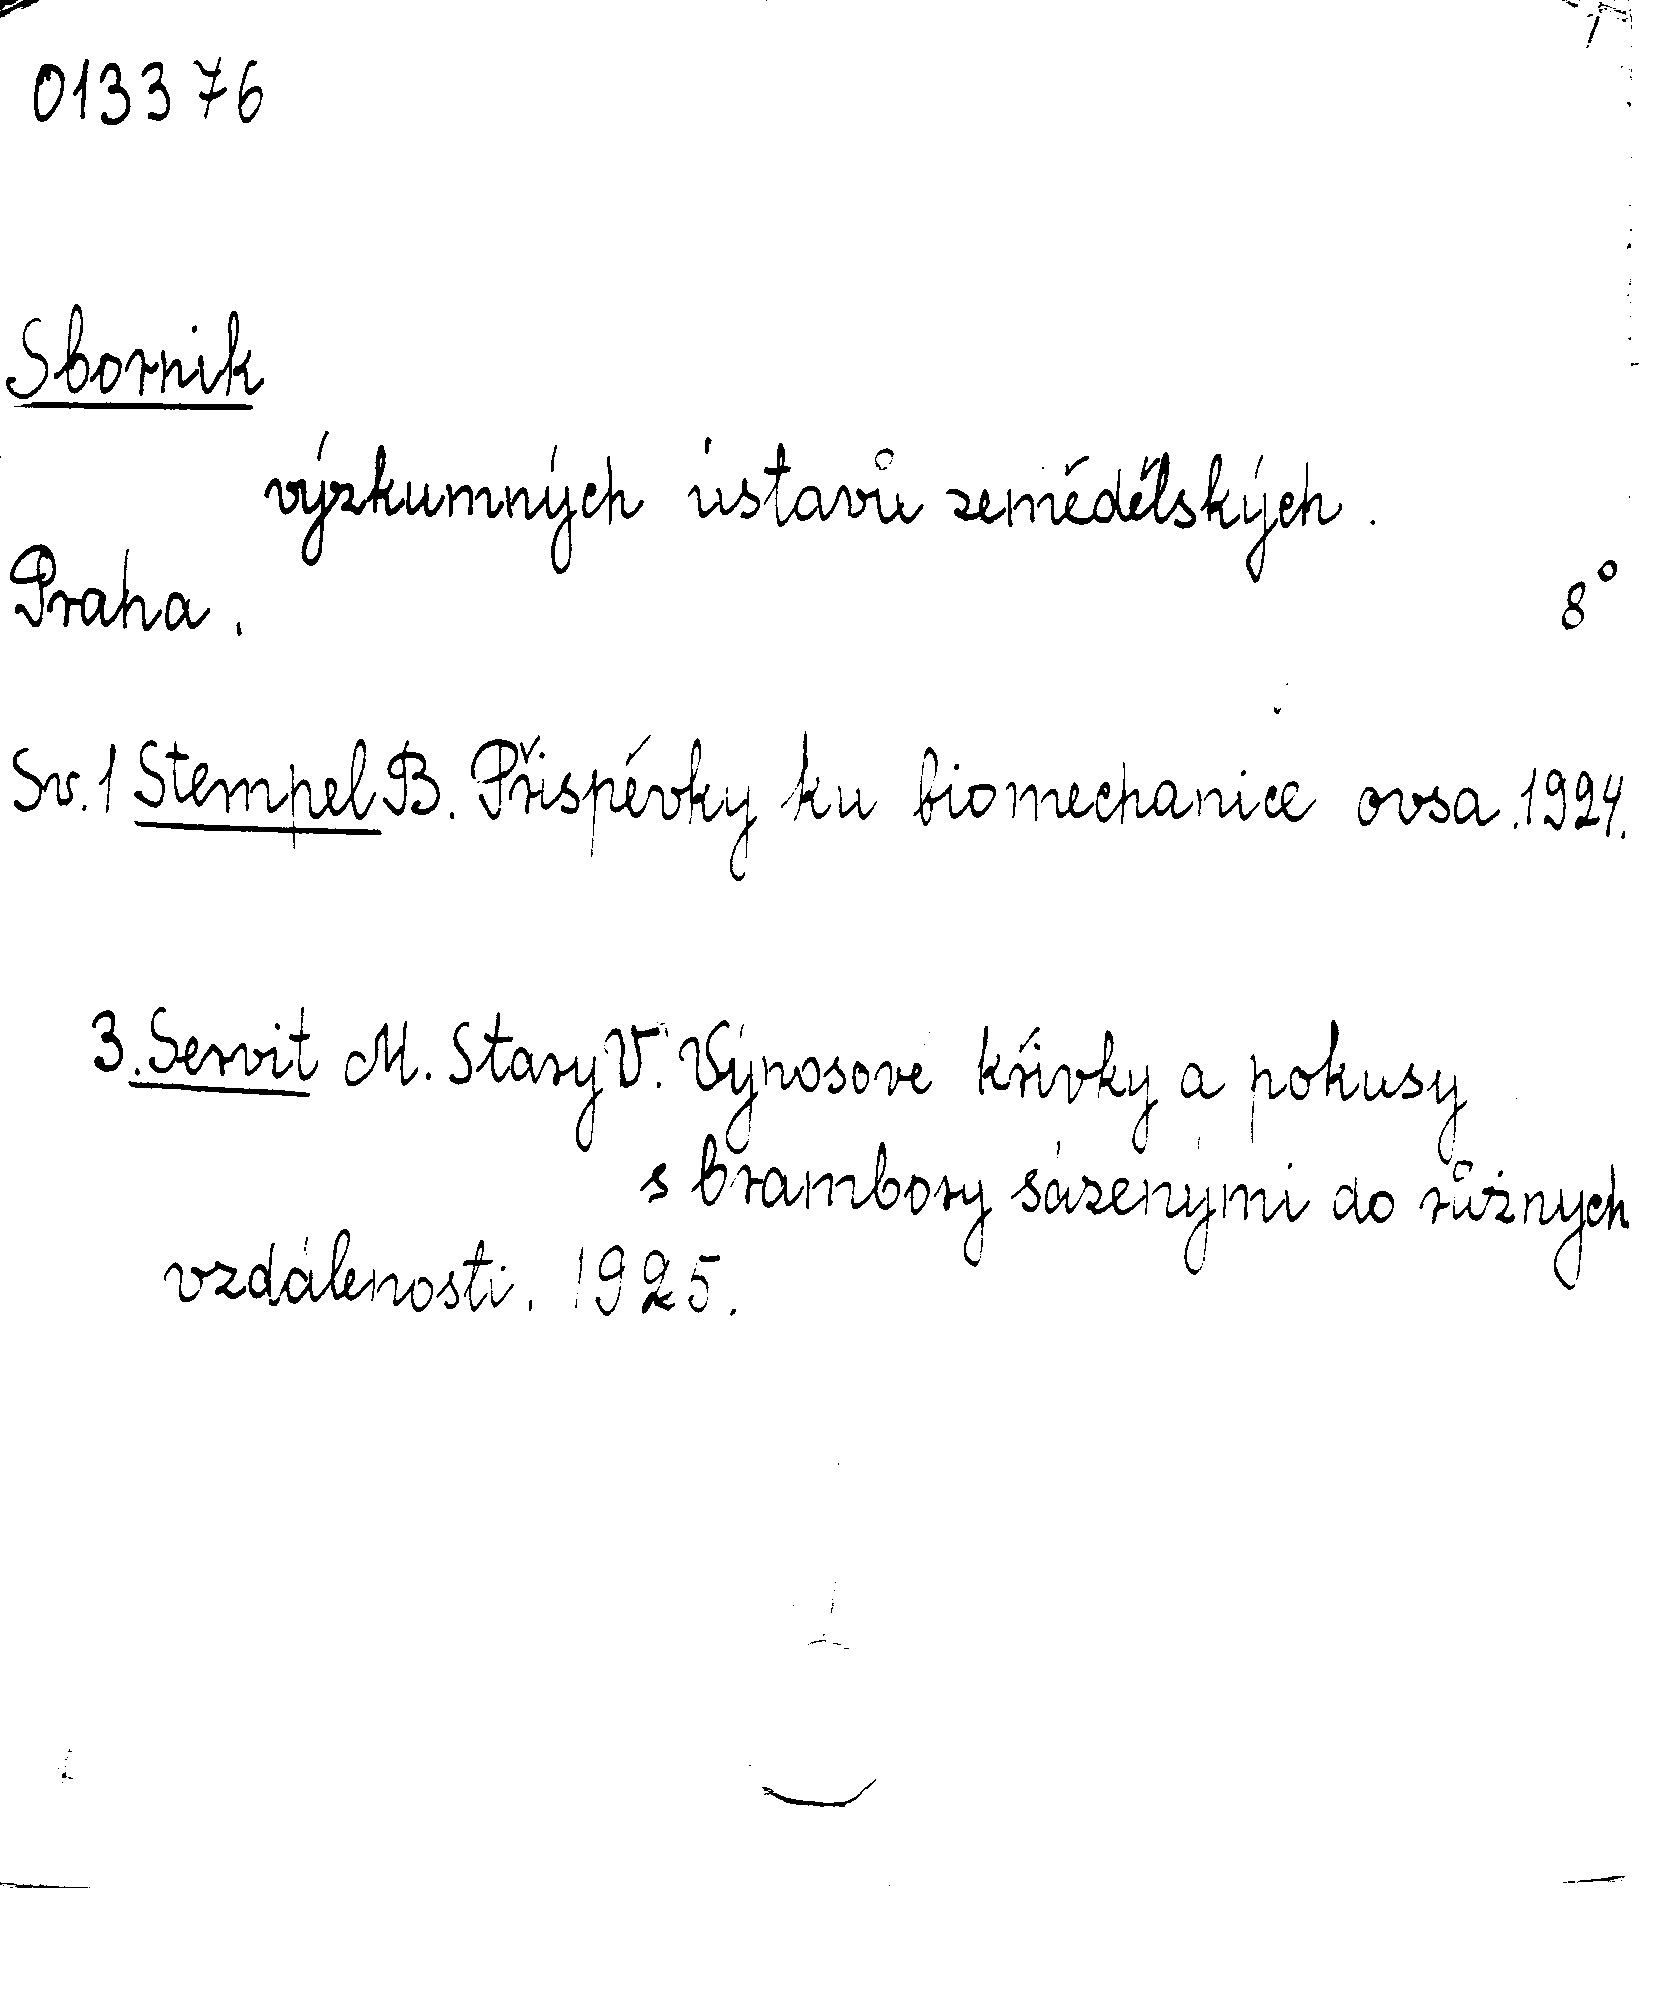 013376
Sbornik
výzkumných ústavů zemědělských.
Praha. 8°
Sv. 1 Stempel B. Přispévky ku biomechanice ovsa. 1924.
3. Servit M. Stary V. Výnosové křivky a pokusy
s brambory sázenými do různych
vzdálenosti. 1925.